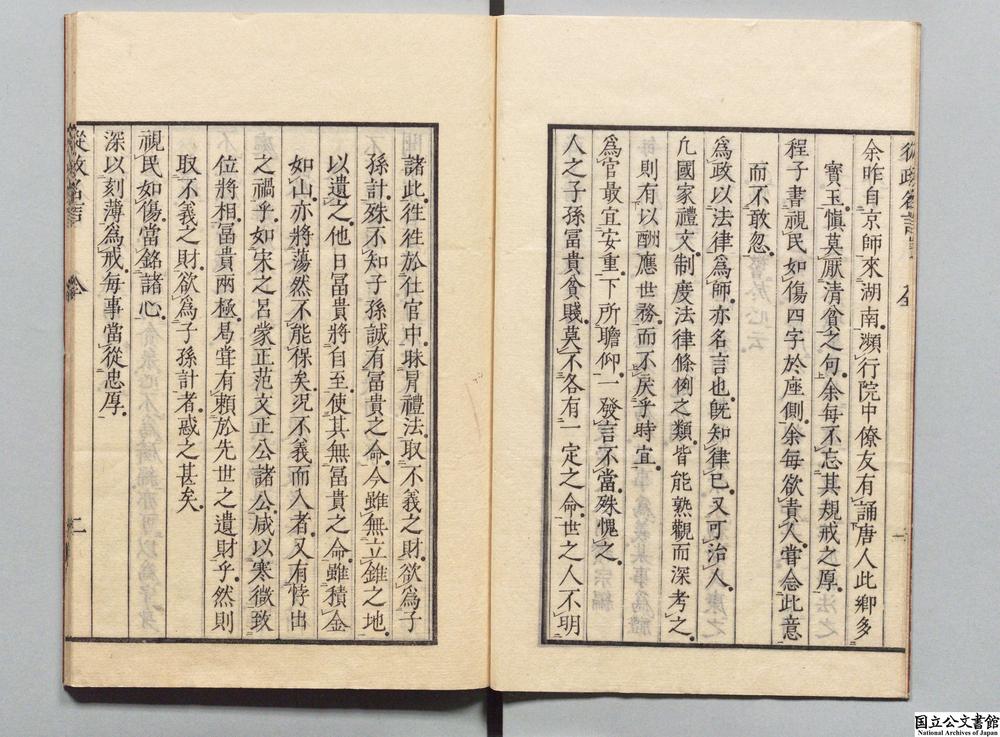 余昨自京師來湖南瀕行院中僚友有誦唐人此鄉多
寶玉愼莫厭清貧之句余每不忘其規戒之厚
程子書視民如傷四字於座側余每欲責人嘗念此意
而不敢忽
爲政以法律爲師亦名言也旣知律已又可治人
凢國家禮文制度法律條例之類皆能熟觀而深考之
則有以酬應世務而不戾乎時宜
爲官最宜安重下所瞻仰一發言不當殊愧之
人之子孫冨貴貧賤莫不各有一定之命世之人不明
諸此徃徃於仕官中昧冐禮法取不義之財欲爲子
孫計殊不知子孫誠有冨貴之命今雖無立錐之地
以遺之他日冨貴將自至使其無冨貴之命雖積金
如山亦將蕩然不能保矣况不義而入者又有悖出
之禍乎如宋之呂蒙正范文正公諸公咸以寒微致
位將相冨貴兩極曷甞有頼於先世之遺財乎然則
取不義之財欲爲子孫計者惑之甚矣
視民如傷當銘諸心
深以刻薄爲戒每事當從忠厚
從政名言 全 二
国立公文書館
National Archives of Japan